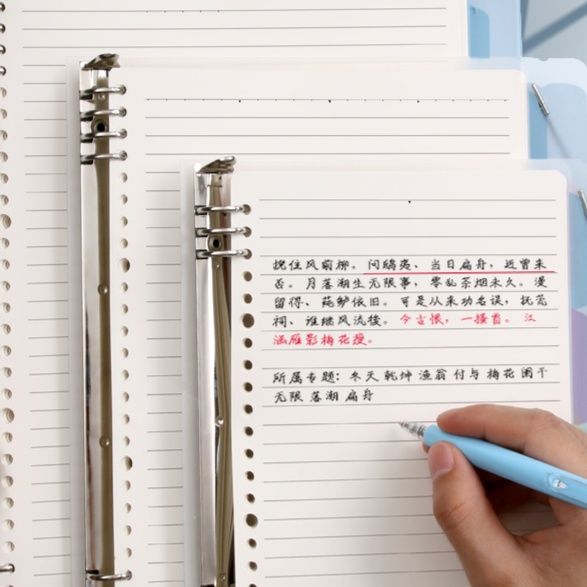 挽住风前柳。问鸱夷、当日扁舟，近曾来
否。月落潮生无限事，零乱茶烟未久。漫
留得、莼鲈依旧。可是从来功名误，抚荒
祠、谁继风流后。今古恨，一搔首。江
涵雁影梅花瘦。
所属专题：冬天 乾坤 渔翁 付与 梅花 阑干
无限 落潮 扁舟